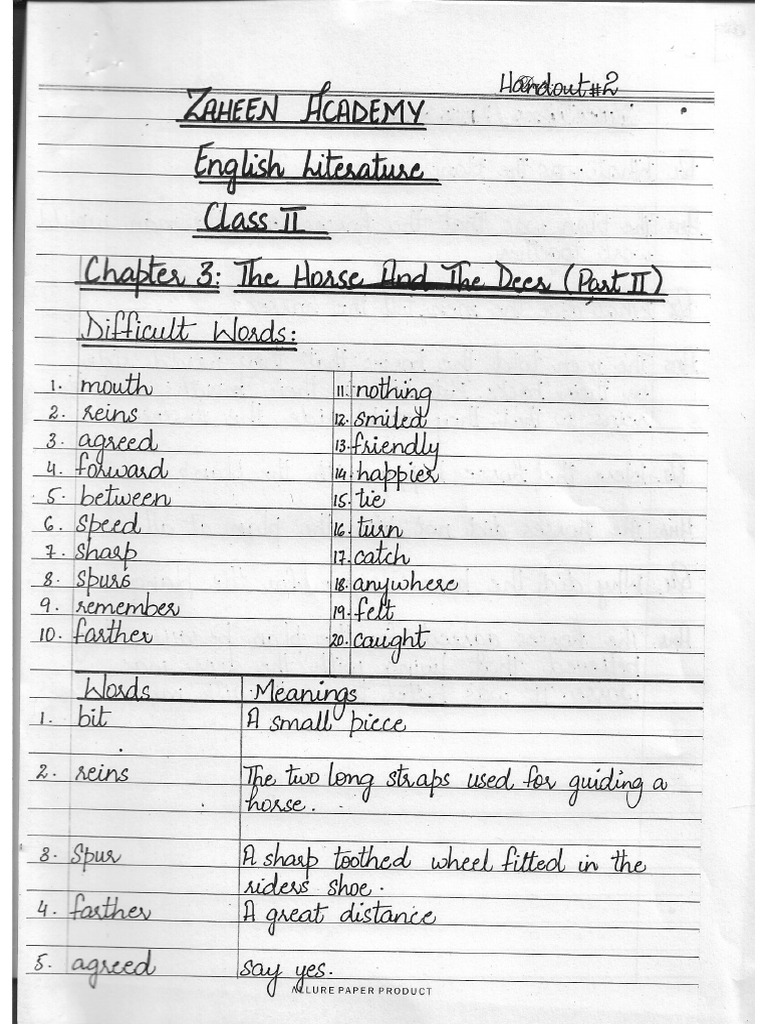 Handout#2
ZAHEEN ACADEMY
English Literature
Class II
Chapter 3: The Horse And The Deer (Part II)
Difficult Words:
1. mouth
2. reins
3. agreed
4. forward
5. between
6. speed
7. sharp
8. spurs
9. remember
10. farther
11. nothing
12. smiled
13. friendly
14. happier
15. tie
16. turn
17. catch
18. anywhere
19. felt
20. caught
Words Meanings
1. bit A small piece
2. reins The two long straps used for guiding a
horse.
3. Spur A sharp toothed wheel fitted in the
riders shoe.
4. farther A great distance
5. agreed say yes.
ALLURE PAPER PRODUCT